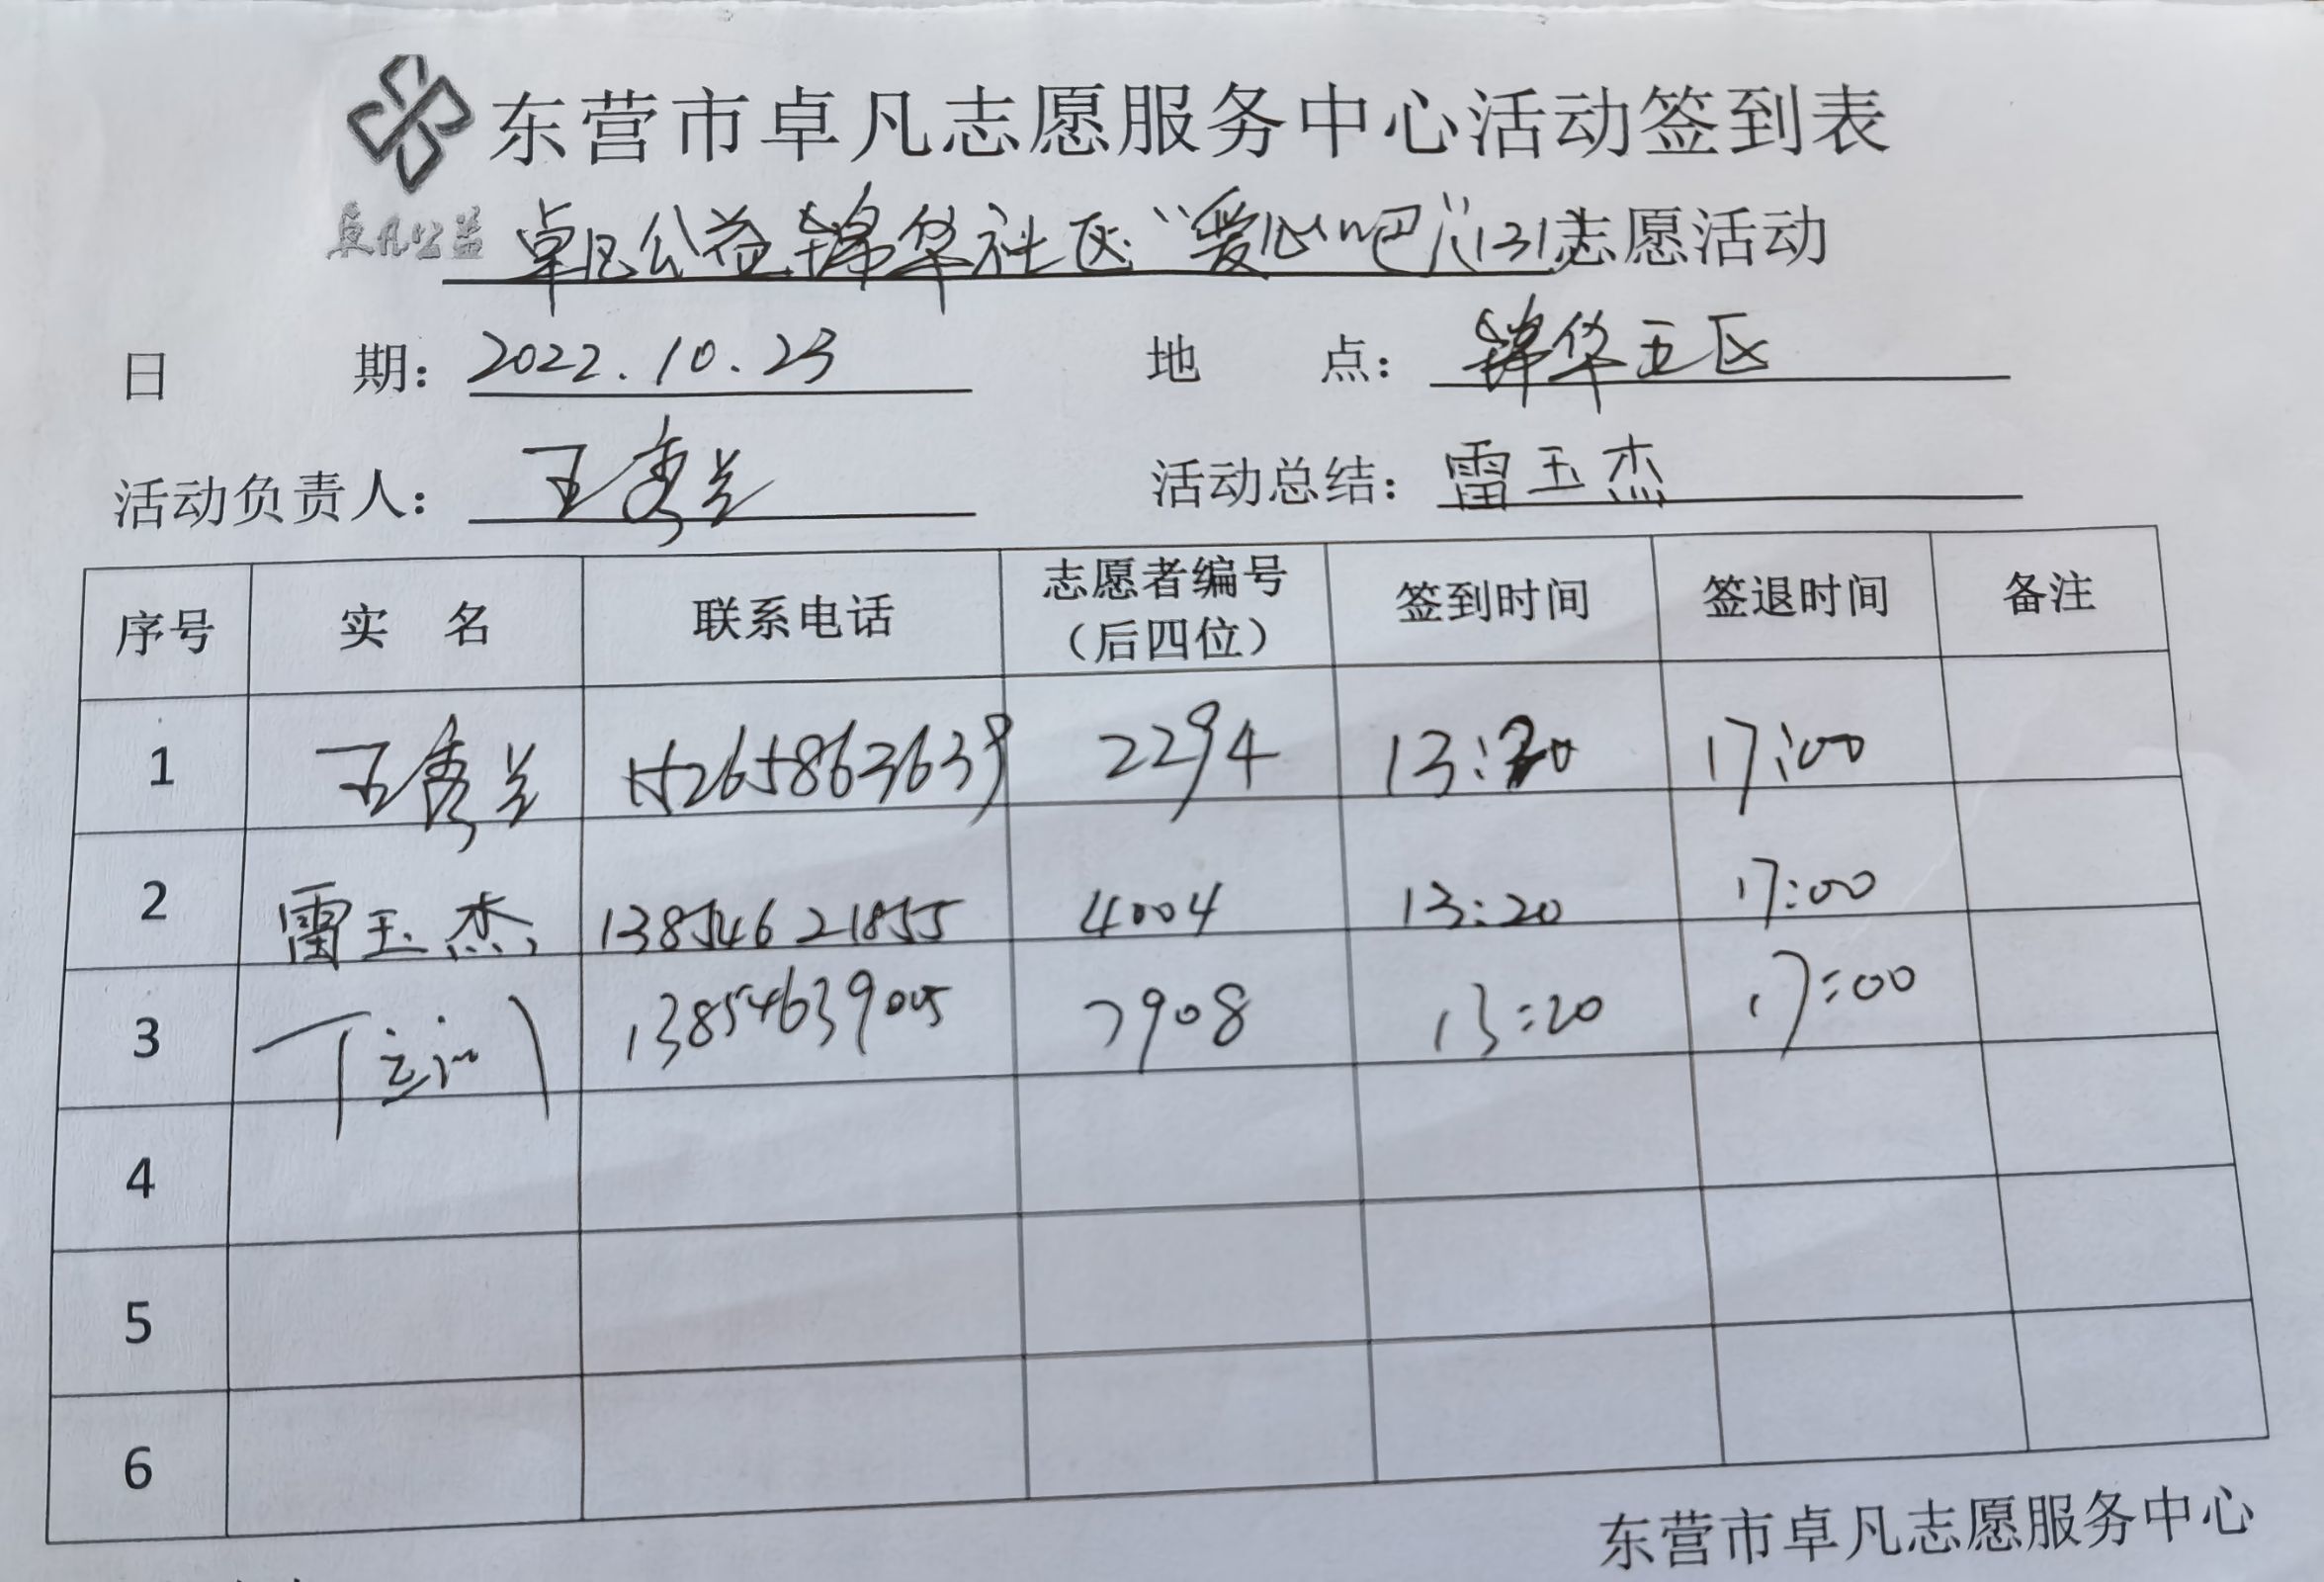 东营市卓凡志愿服务中心活动签到表
卓凡公益
卓凡公益锦华社区“爱心吧”(131)志愿活动
日 期: 2022.10.23 地 点: 锦华五区
活动负责人: 王秀兰 活动总结: 雷玉杰
序号 实 名 联系电话 志愿者编号（后四位） 签到时间 签退时间 备注
1 王秀兰 15265863639 2294 13:20 17:00
2 雷玉杰 13854621855 4004 13:20 17:00
3 13854639005 7908 13:20 17:00
4
5
6
东营市卓凡志愿服务中心